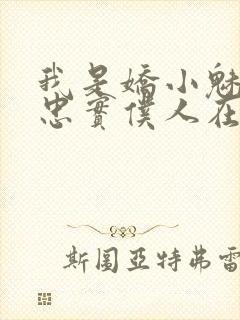 我是嬌小魅
忠實僕人在
斯圖亞特弗雷